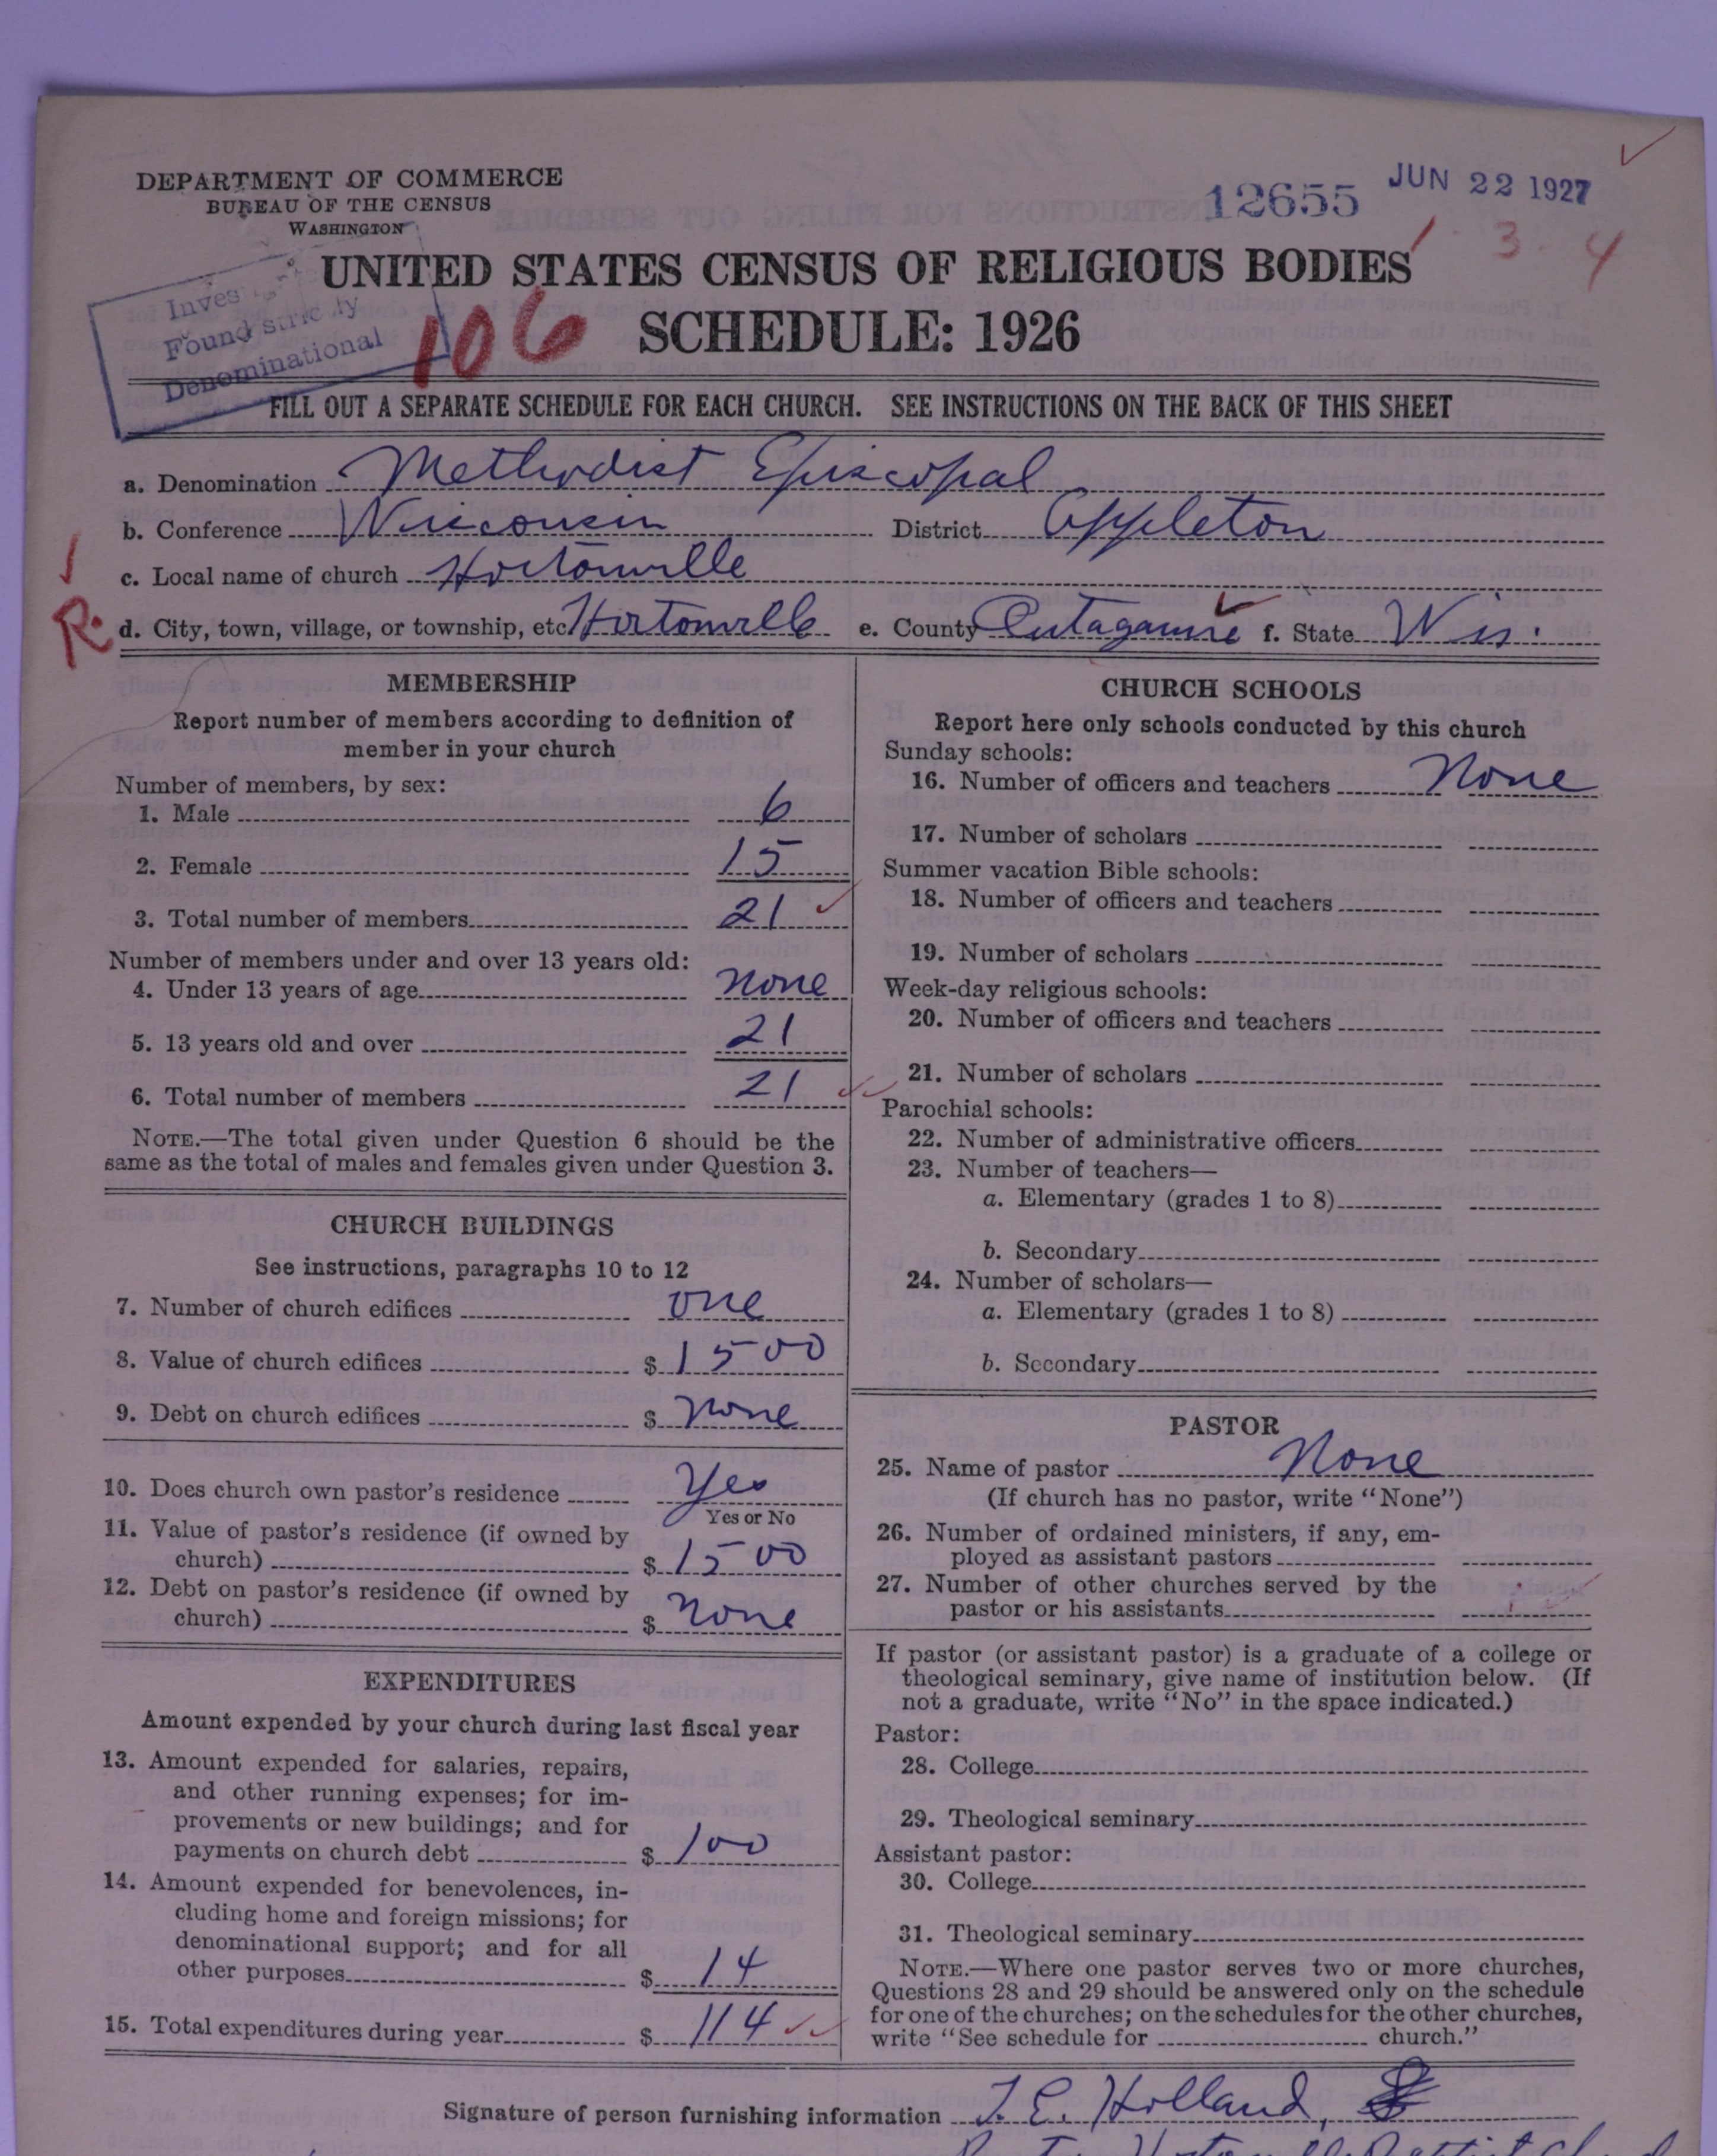 DEPARTMENT OF COMMERCE
BUREAU OF THE CENSUS
WASHINGTON
12655 JUN 22 1927
1. 3. 4
UNITED STATES CENSUS OF RELIGIOUS BODIES
SCHEDULE: 1926
Found strictly
Denominational
106
FILL OUT A SEPARATE SCHEDULE FOR EACH CHURCH. SEE INSTRUCTIONS ON THE BACK OF THIS SHEET
a. Denomination Methodist Episcopal
b. Conference Wisconsin District Appleton
c. Local name of church Hortonville
R. d. City, town, village, or township, etc. Hortonville e. County Outagamie f. State Wis.
MEMBERSHIP
Report number of members according to definition of
member in your church
Number of members, by sex:
1. Male 6
2. Female 15
3. Total number of members 21
Number of members under and over 13 years old:
4. Under 13 years of age none
5. 13 years old and over 21
6. Total number of members 21
NOTE.—The total given under Question 6 should be the
same as the total of males and females given under Question 3.
CHURCH BUILDINGS
See instructions, paragraphs 10 to 12
7. Number of church edifices one
8. Value of church edifices $ 1500
9. Debt on church edifices $ none
10. Does church own pastor's residence Yes
Yes or No
11. Value of pastor's residence (if owned by
church) $ 1500
12. Debt on pastor's residence (if owned by
church) $ none
EXPENDITURES
Amount expended by your church during last fiscal year
13. Amount expended for salaries, repairs,
and other running expenses; for im-
provements or new buildings; and for
payments on church debt $ 100
14. Amount expended for benevolences, in-
cluding home and foreign missions; for
denominational support; and for all
other purposes $ 14
15. Total expenditures during year $ 114
CHURCH SCHOOLS
Report here only schools conducted by this church
Sunday schools:
16. Number of officers and teachers None
17. Number of scholars
Summer vacation Bible schools:
18. Number of officers and teachers
19. Number of scholars
Week-day religious schools:
20. Number of officers and teachers
21. Number of scholars
Parochial schools:
22. Number of administrative officers
23. Number of teachers—
a. Elementary (grades 1 to 8)
b. Secondary
24. Number of scholars—
a. Elementary (grades 1 to 8)
b. Secondary
PASTOR
25. Name of pastor None
(If church has no pastor, write "None")
26. Number of ordained ministers, if any, em-
ployed as assistant pastors
27. Number of other churches served by the
pastor or his assistants
If pastor (or assistant pastor) is a graduate of a college or
theological seminary, give name of institution below. (If
not a graduate, write "No" in the space indicated.)
Pastor:
28. College
29. Theological seminary
Assistant pastor:
30. College
31. Theological seminary
NOTE.—Where one pastor serves two or more churches,
Questions 28 and 29 should be answered only on the schedule
for one of the churches; on the schedules for the other churches,
write "See schedule for church."
Signature of person furnishing information T. E. Holland,
Hortonville Baptist Church